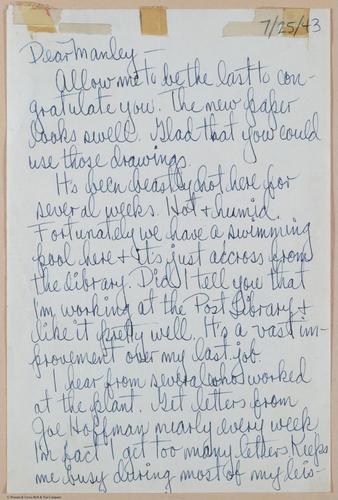 7/25/43
Dear Manley —
Allow me to be the last to con-
gratulate you. The new paper
looks swell. Glad that you could
use those drawings.
It's been beastly hot here for
several weeks. Hot + humid.
Fortunately we have a swimming
pool here + it's just accross from
the library. Did I tell you that
I'm working at the Post Library +
like it pretty well. It's a vast im-
provement over my last job.
I hear from several who worked
at the plant. Get letters from
Joe Hoffman nearly every week
In fact I get too many letters Keeps
me busy during most of my leis-